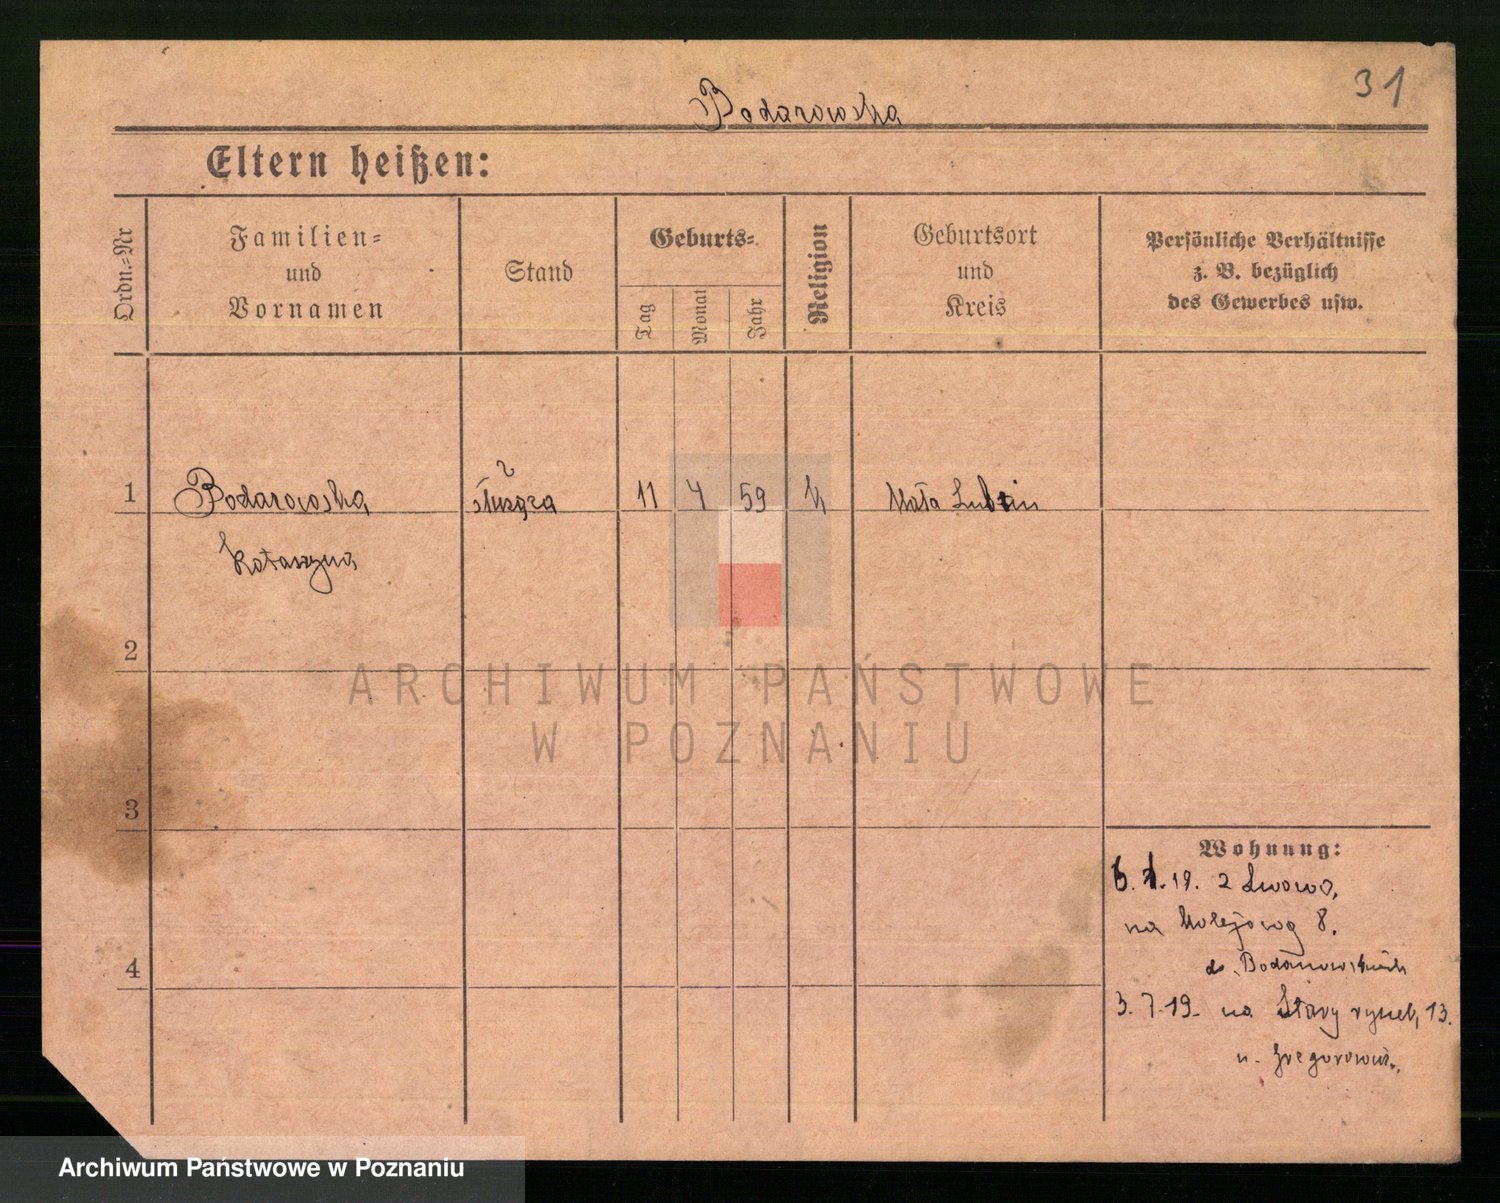 31
Bodarowska
Eltern heißen:
Ordn.=Nr
Familien=
und
Vornamen
Stand
Geburts=
Tag
Monat
Jahr
Religion
Geburtsort
und
Kreis
Persönliche Verhältnisse
z. B. bezüglich
des Gewerbes usw.
1 Bodarowska służąca 11 4 59 k Mała Lubin
Katarzyna
2
3
4
Wohnung:
6. 1. 19. z Lwowa,
na Kolejową 8.
do Bodarowskich
3. 7. 19. na Stary rynek, 13.
u.
ARCHIWUM PAŃSTWOWE
W POZNANIU
Archiwum Państwowe w Poznaniu